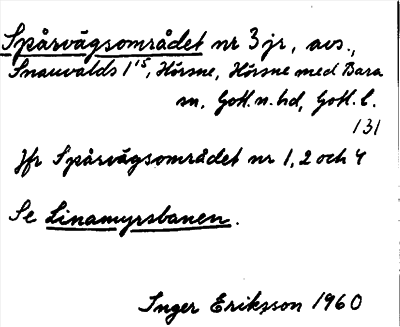 Spårvägsområdet nr 3 jr, avs.,
Snauvalds 1¹⁵, Hörsne, Hörsne med Bara
sn, Gotl. n. hd, Gotl. l.
131
Jfr Spårvägsområdet nr 1, 2 och 4
Se Linamyrsbanen.
Inger Eriksson 1960